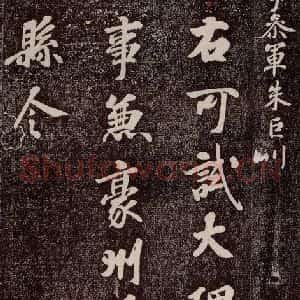 參軍朱巨川
右可試大理
事兼豪州
縣令
Shufawang.CN